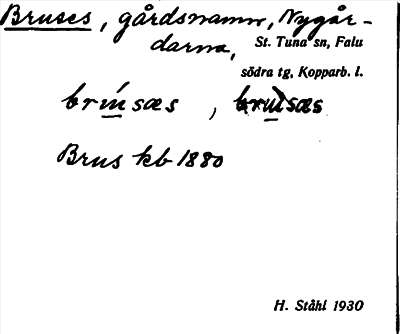 Bruses, gårdsnamn, Nygår-
darna, St. Tuna sn, Falu
södra tg, Kopparb. l.
brú̱sæs, bru̱sæs
Brus kb 1880
H. Ståhl 1930